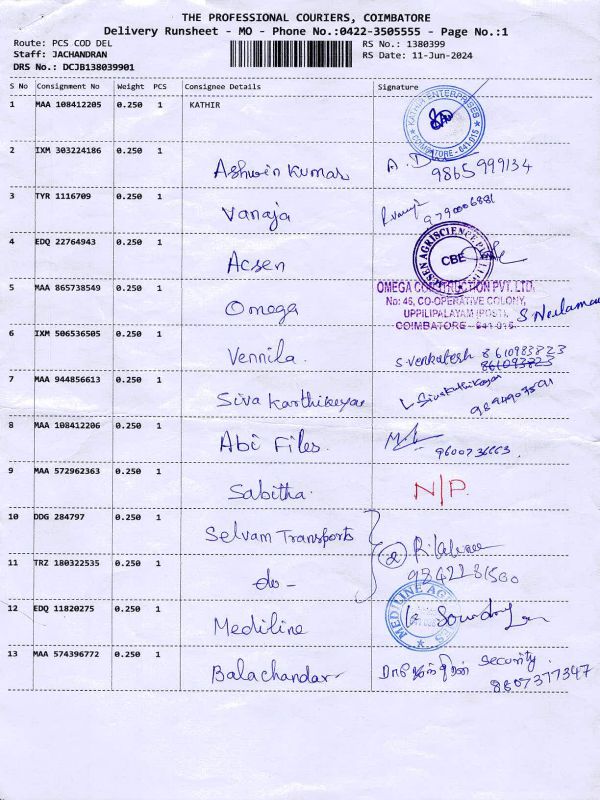 THE PROFESSIONAL COURIERS, COIMBATORE
Delivery Runsheet - MO - Phone No.:0422-3505555 - Page No.:1
Route: PCS COD DEL
RS No.: 1380399
Staff: JACHANDRAN
RS Date: 11-Jun-2024
DRS No.: DCJB138039901
S No Consignment No Weight PCS Consignee Details Signature
1 MAA 108412205 0.250 1 KATHIR
KATHIR ENTERPRISES
COIMBATORE - 641-015
2 IXM 303224186 0.250 1 Ashwin Kumar A.D
9865999134
3 TYR 1116709 0.250 1 Vanaja R.Vanaja
9790006881
4 EDQ 22764943 0.250 1 Acsen
ACSEN AGRISCIENCE PVT LTD
CBE
5 MAA 865738549 0.250 1 Omega
OMEGA CONSTRUCTION PVT. LTD.
No: 46, CO-OPERATIVE COLONY,
UPPILIPALAYAM (POST),
COIMBATORE - 641 015
S Neelama
6 IXM 506536505 0.250 1 Vennila. S.Venkatesh 8610983823
7 MAA 944856613 0.250 1 Siva Karthikeyan L Sivakarthikeyan
8 MAA 108412206 0.250 1 Abi Files.
9600736663.
9 MAA 572962363 0.250 1 Sabitha. N/P.
10 DDG 284797 0.250 1 Selvam Transports
11 TRZ 180322535 0.250 1 do - 9842281500
12 EDQ 11820275 0.250 1 Mediline
MEDILINE
13 MAA 574396772 0.250 1 Balachandar security.
8807377347